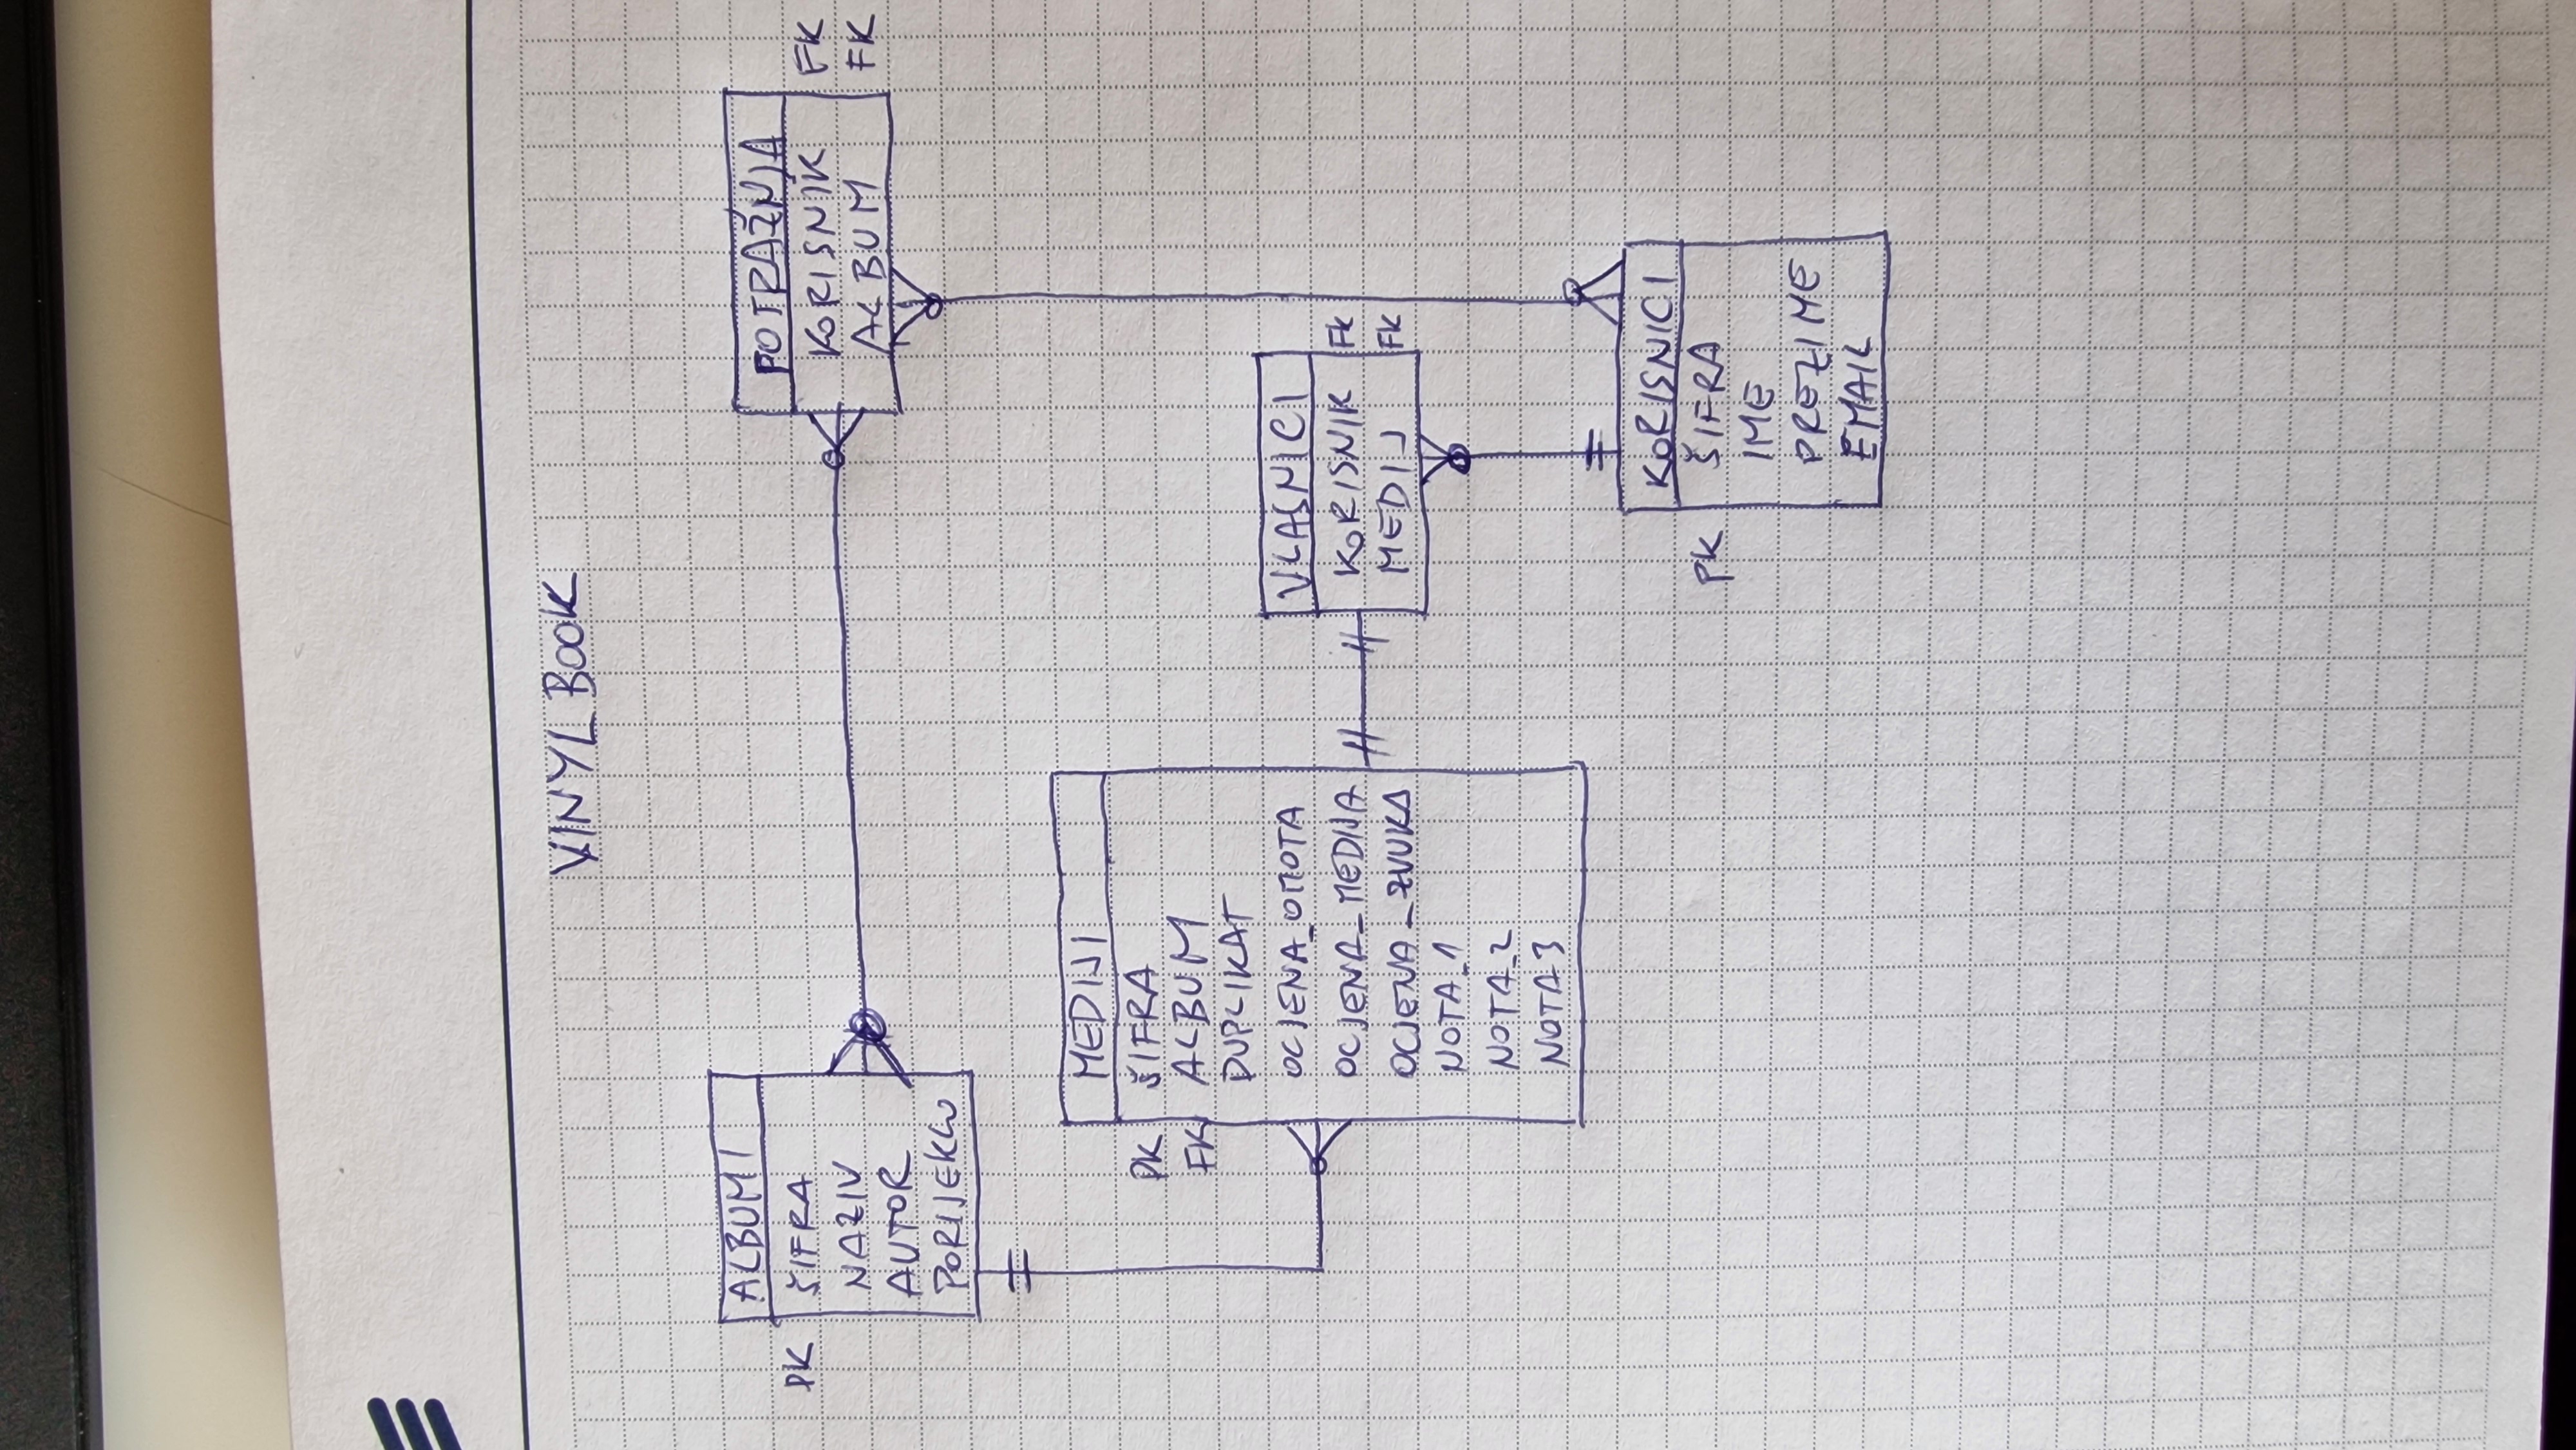 VINYL BOOK
ALBUMI
PK ŠIFRA
NAZIV
AUTOR
PORIJEKLO
POTRAŽNJA
KORISNIK FK
ALBUM FK
MEDIJI
PK ŠIFRA
FK ALBUM
DUPLIKAT
OCJENA_OMOTA
OCJENA_MEDIJA
OCJENA_ZVUKA
NOTA_1
NOTA_2
NOTA 3
VLASNICI
KORISNIK FK
MEDIJ FK
KORISNICI
PK ŠIFRA
IME
PREZIME
EMAIL